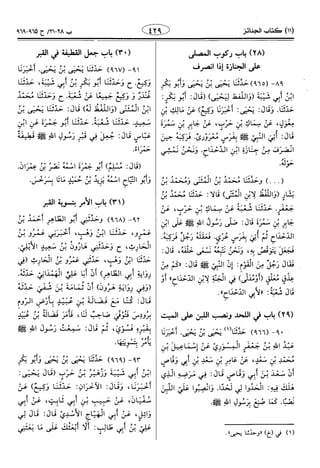 (١١) كتاب الجنائز
٤٢٩
ب ٢٨-٣١/ح ٩٦٥-٩٦٩
(٢٨) باب ركوب المصلى
على الجنازة إذا انصرف
٨٩- (٩٦٥) حَدَّثَنَا يَحْيَى بْنُ يَحْيَى وَأَبُو بَكْرِ
ابْنُ أَبِي شَيْبَةَ (وَاللَّفْظُ لِيَحْيَى) (قَالَ: أَبُو بَكْرٍ:
حَدَّثَنَا. وَقَالَ يَحْيَى: أَخْبَرَنَا) وَكِيعٌ عَنْ مَالِكِ بْنِ
مِغْوَلٍ، عَنْ سِمَاكِ بْنِ حَرْبٍ، عَنْ جَابِرِ بْنِ سَمُرَةَ
قَالَ: أُتِيَ النَّبِيُّ ﷺ بِفَرَسٍ مُعْرَوْرًى، فَرَكِبَهُ حِينَ
انْصَرَفَ مِنْ جِنَازَةِ ابْنِ الدَّحْدَاحِ، وَنَحْنُ نَمْشِي
حَوْلَهُ.
(...) وَحَدَّثَنَا مُحَمَّدُ بْنُ الْمُثَنَّى وَمُحَمَّدُ بْنُ
بَشَّارٍ (وَاللَّفْظُ لِابْنِ الْمُثَنَّى) قَالَا: حَدَّثَنَا مُحَمَّدُ بْنُ
جَعْفَرٍ. حَدَّثَنَا شُعْبَةُ عَنْ سِمَاكِ بْنِ حَرْبٍ، عَنْ
جَابِرِ بْنِ سَمُرَةَ قَالَ: صَلَّى رَسُولُ اللهِ ﷺ عَلَى ابْنِ
الدَّحْدَاحِ، ثُمَّ أُتِيَ بِفَرَسٍ عُرْيٍ، فَعَقَلَهُ رَجُلٌ فَرَكِبَهُ.
فَجَعَلَ يَتَوَقَّصُ بِهِ، وَنَحْنُ نَتَّبِعُهُ نَسْعَى خَلْفَهُ. قَالَ:
فَقَالَ رَجُلٌ مِنَ الْقَوْمِ: إِنَّ النَّبِيَّ ﷺ قَالَ: «كَمْ مِنْ
عِذْقٍ مُعَلَّقٍ (أَوْ مُدَلًّى) فِي الْجَنَّةِ لِابْنِ الدَّحْدَاحِ» أَوْ
قَالَ شُعْبَةُ: «لِأَبِي الدَّحْدَاحِ».
(٢٩) باب في اللحد ونصب اللبن على الميت
٩٠- (٩٦٦) حَدَّثَنَا(١) يَحْيَى بْنُ يَحْيَى. أَخْبَرَنَا
عَبْدُ اللهِ بْنُ جَعْفَرٍ الْمِسْوَرِيُّ عَنْ إِسْمَاعِيلَ بْنِ
مُحَمَّدِ بْنِ سَعْدٍ، عَنْ عَامِرِ بْنِ سَعْدِ بْنِ أَبِي وَقَّاصٍ
أَنَّ سَعْدَ بْنَ أَبِي وَقَّاصٍ قَالَ: فِي مَرَضِهِ الَّذِي
هَلَكَ فِيهِ: الْحَدُوا لِي لَحْدًا. وَانْصِبُوا عَلَيَّ اللَّبِنَ
نَصْبًا. كَمَا صُنِعَ بِرَسُولِ اللهِ ﷺ.
(١) في (خ) «وحدثنا يحيى».
(٣٠) باب جعل القطيفة في القبر
٩١- (٩٦٧) حَدَّثَنَا يَحْيَى بْنُ يَحْيَى. أَخْبَرَنَا
وَكِيعٌ. ح وَحَدَّثَنَا أَبُو بَكْرِ بْنُ أَبِي شَيْبَةَ. حَدَّثَنَا
غُنْدَرٌ وَ وَكِيعٌ جَمِيعًا عَنْ شُعْبَةَ. ح وَحَدَّثَنَا مُحَمَّدُ
ابْنُ الْمُثَنَّى (وَاللَّفْظُ لَهُ) قَالَ: حَدَّثَنَا يَحْيَى بْنُ
سَعِيدٍ. حَدَّثَنَا شُعْبَةُ. حَدَّثَنَا أَبُو جَمْرَةَ عَنِ ابْنِ
عَبَّاسٍ قَالَ: جُعِلَ فِي قَبْرِ رَسُولِ اللهِ ﷺ قَطِيفَةٌ
حَمْرَاءُ.
(قَالَ: مُسْلِمٌ) أَبُو جَمْرَةَ اسْمُهُ نَصْرُ بْنُ عِمْرَانَ.
وَأَبُو التَّيَّاحِ اسْمُهُ يَزِيدُ بْنُ حُمَيْدٍ مَاتَا بِسَرَخْسَ.
(٣١) باب الأمر بتسوية القبر
٩٢- (٩٦٨) وَحَدَّثَنِي أَبُو الطَّاهِرِ أَحْمَدُ بْنُ
عَمْرٍو. حَدَّثَنَا ابْنُ وَهْبٍ. أَخْبَرَنِي عَمْرُو بْنُ
الْحَارِثِ. ح وَحَدَّثَنِي هَارُونُ بْنُ سَعِيدٍ الْأَيْلِيُّ.
حَدَّثَنَا ابْنُ وَهْبٍ. حَدَّثَنِي عَمْرُو بْنُ الْحَارِثِ (فِي
رِوَايَةِ أَبِي الطَّاهِرِ) أَنَّ أَبَا عَلِيٍّ الْهَمْدَانِيَّ حَدَّثَهُ.
(وَفِي رِوَايَةِ هَارُونَ) أَنَّ ثُمَامَةَ بْنَ شُفَيٍّ حَدَّثَهُ
قَالَ: كُنَّا مَعَ فَضَالَةَ بْنِ عُبَيْدٍ بِأَرْضِ الرُّومِ
بِرُودِسَ فَتُوُفِّيَ صَاحِبٌ لَنَا، فَأَمَرَ فَضَالَةُ بْنُ عُبَيْدٍ
بِقَبْرِهِ فَسُوِّيَ، ثُمَّ قَالَ: سَمِعْتُ رَسُولَ اللهِ ﷺ
يَأْمُرُ بِتَسْوِيَتِهَا.
٩٣- (٩٦٩) حَدَّثَنَا يَحْيَى بْنُ يَحْيَى وَأَبُو بَكْرِ
ابْنُ أَبِي شَيْبَةَ وَزُهَيْرُ بْنُ حَرْبٍ (قَالَ يَحْيَى:
أَخْبَرَنَا، وَقَالَ: الْآخَرَانِ: حَدَّثَنَا) وَكِيعٌ عَنْ
سُفْيَانَ، عَنْ حَبِيبِ بْنِ أَبِي ثَابِتٍ، عَنْ أَبِي
وَائِلٍ، عَنْ أَبِي الْهَيَّاجِ الْأَسَدِيِّ قَالَ: قَالَ لِي
عَلِيُّ بْنُ أَبِي طَالِبٍ: أَلَّا أَبْعَثُكَ عَلَى مَا بَعَثَنِي